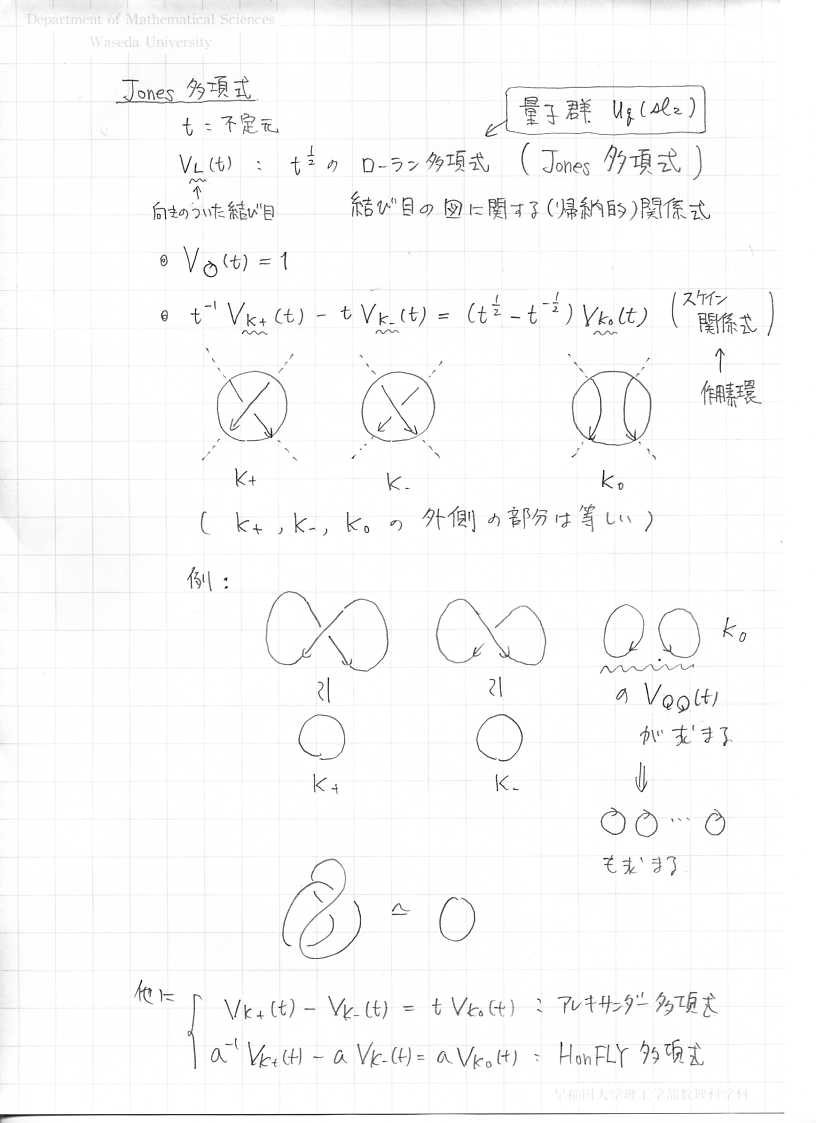 Department of Mathematical Sciences
Waseda University
Jones 多項式
t : 不定元
量子群 Uq(sl2)
VL(t) : t^{1/2} の ローラン多項式 (Jones 多項式)
↑
向きのついた結び目
結び目の図に関する(帰納的)関係式
◎ V○(t) = 1
◎ t^{-1} V_{K+}(t) - t V_{K-}(t) = (t^{1/2} - t^{-1/2}) V_{K0}(t) (スケイン関係式)
↑
作用素環
K+ K- K0
( K+, K-, K0 の 外側の部分は等しい )
例 :
K0
の V○○(t)
が 求まる
K+ K-
⇓
○ ○ … ○
も求まる
≃
他に
V_{K+}(t) - V_{K-}(t) = t V_{K0}(t) : アレキサンダー多項式
a^{-1} V_{K+}(t) - a V_{K-}(t) = a V_{K0}(t) : HomFLY 多項式
早稲田大学理工学部数理科学科